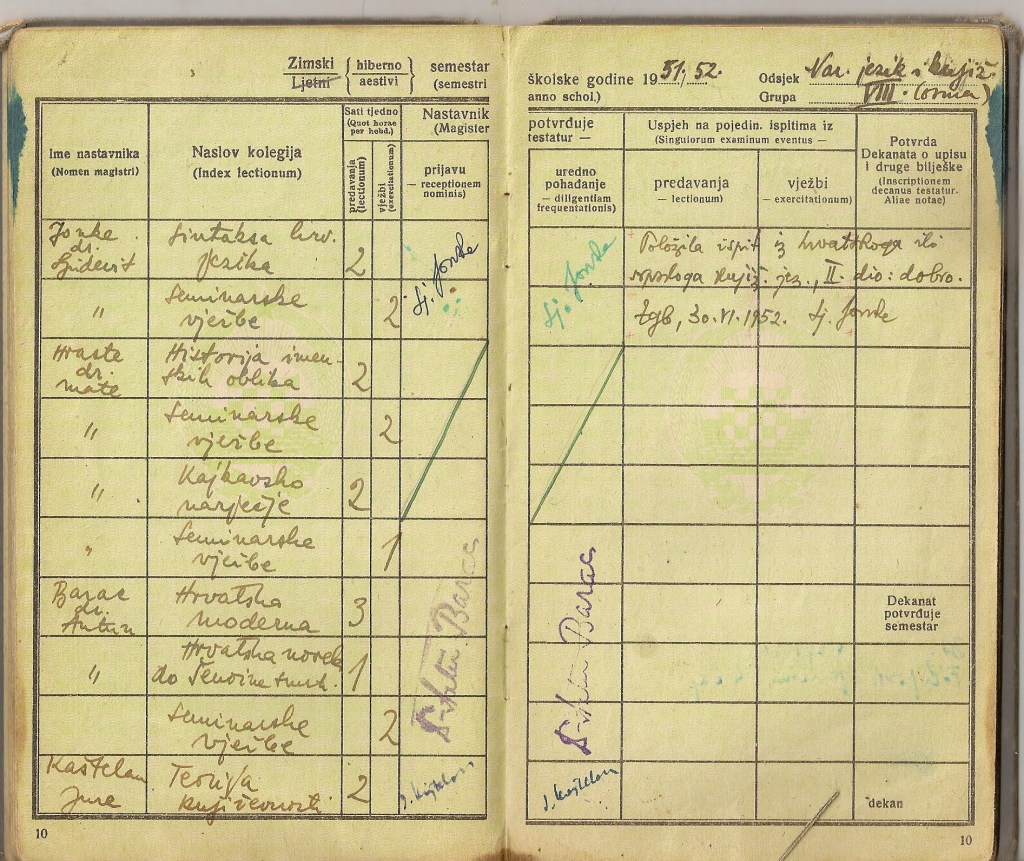 Zimski { hiberno } semestar
Ljetni { aestivi } (semestri
školske godine 1951/52.
anno schol.)
Odsjek Nar. jezik i knjiž.
Grupa VIII. (osma)
Ime nastavnika
(Nomen magistri)
Naslov kolegija
(Index lectionum)
Sati tjedno
(Quot horae
per hebd.)
predavanja
(lectionum)
vježbi
(exercitationum)
Nastavnik
(Magister
prijavu
— receptionem
nominis)
potvrđuje
testatur —
uredno
pohađanje
— diligentiam
frequentationis)
Uspjeh na pojedin. ispitima iz
(Singulorum examinum eventus —
predavanja
— lectionum)
vježbi
— exercitationum)
Potvrda
Dekanata o upisu
i druge bilješke
(Inscriptionem
decanus testatur.
Aliae notae)
Jonke
dr.
Ljudevit
Sintaksa hrv.
jezika
2
Lj. Jonke
Lj. Jonke
Položila ispit iz hrvatskoga ili
srpskoga knjiž. jez., II. dio: dobro.
" Seminarske
vježbe
2
Zgb, 30. VI. 1952. Lj. Jonke
Hraste
dr.
Mate
Historija imen-
skih oblika
2
" Seminarske
vježbe
2
" Kajkavsko
narječje
2
" Seminarske
vježbe
1
Barac
dr.
Antun
Hrvatska
moderna
3
Barac
Barac
Dekanat
potvrđuje
semestar
" Hrvatska novela
do Šenoine smrti.
1
Seminarske
vježbe
2
Kaštelan
Jure
Teorija
književnosti
2
J. Kaštelan
J. Kaštelan
dekan
10
10